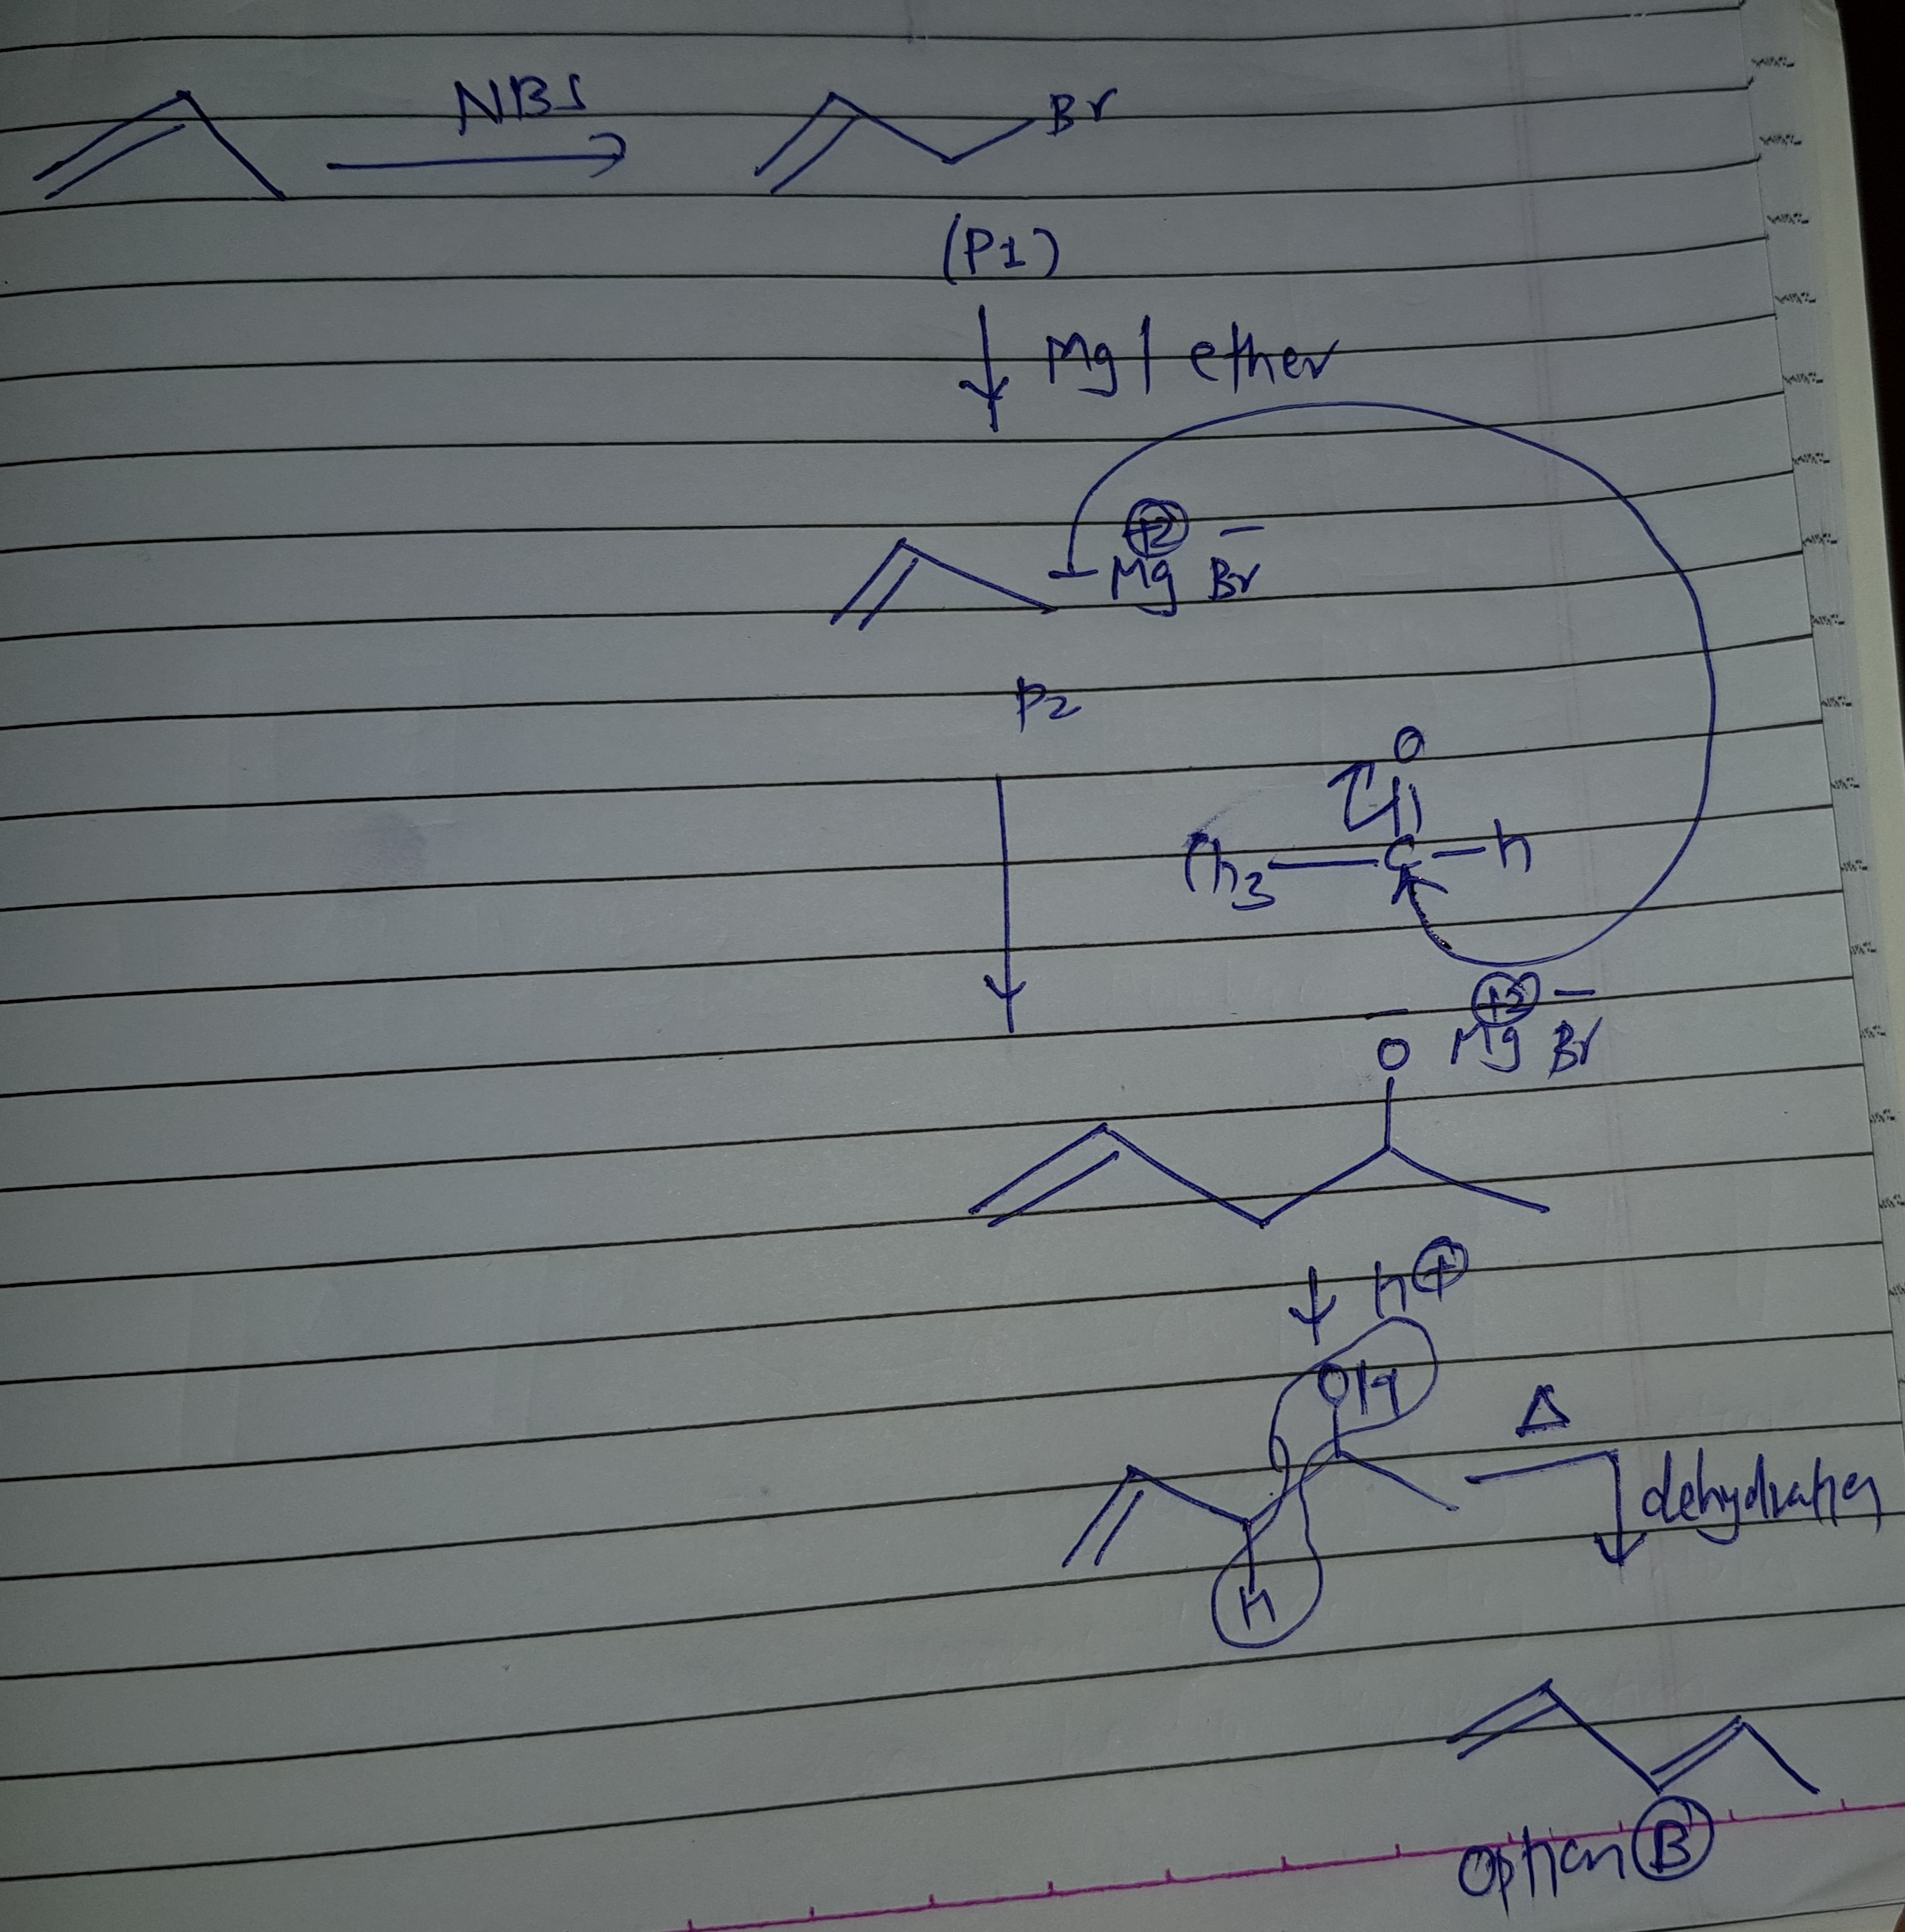 NBS
Br
(P1)
Mg / ether
+2 −
Mg Br
P2
O
CH3 — C — H
− +2 −
O Mg Br
H +
OH
Δ
dehydration
H
option B